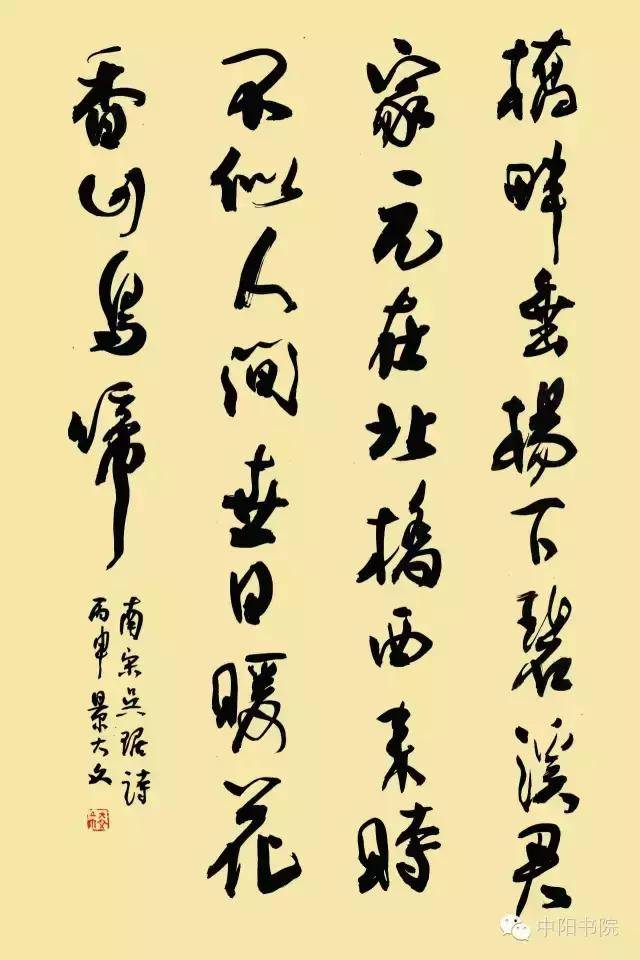 橋畔垂楊下碧溪君
家元在北橋西来時
不似人間世日暖花
香山鳥啼
南宋吳琚詩
丙申景大文
中阳书院